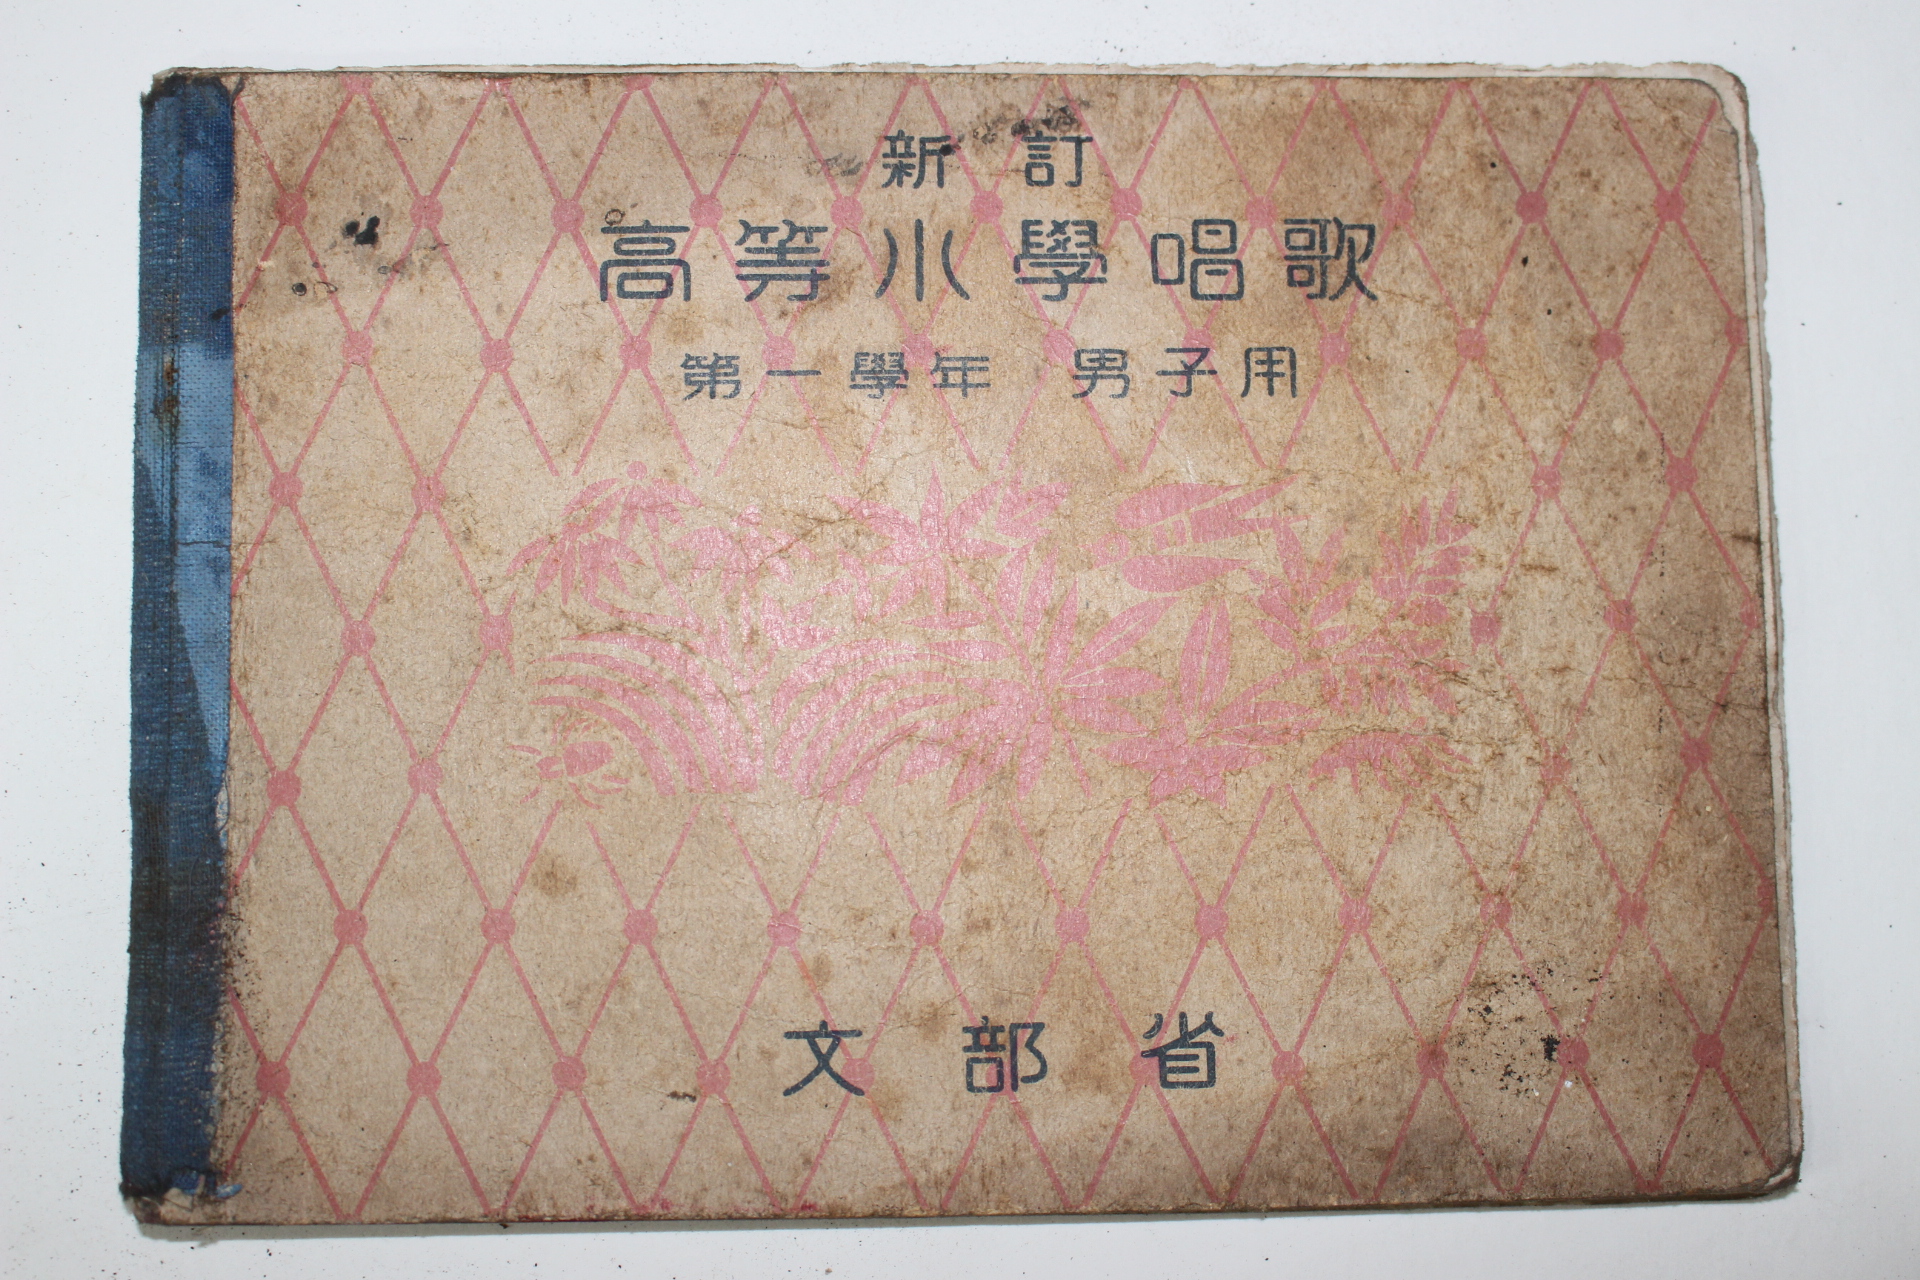 新訂
高等小學唱歌
第一學年 男子用
文部省